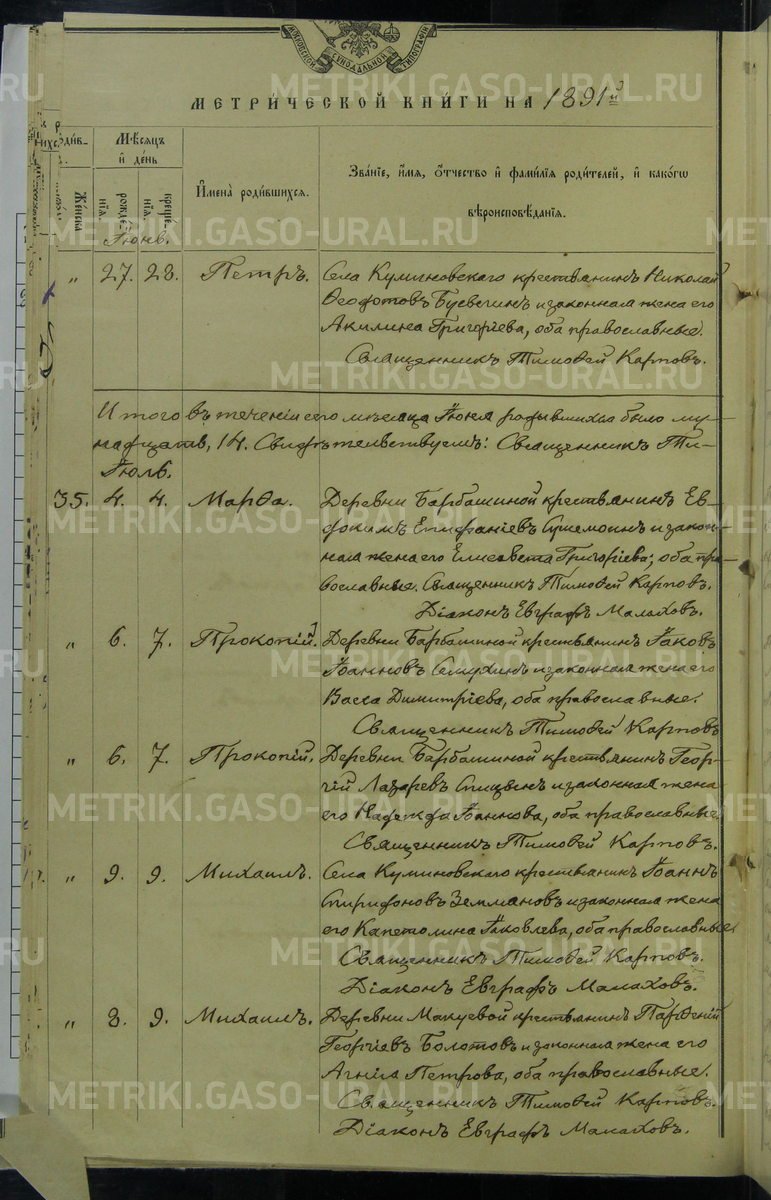 МОСКОВСКОЙ СѴНОДАЛЬНОЙ ТИПОГРАФІИ
МЕТРИ́ЧЕСКОЙ КНИ́ГИ НА 1891й
Мѣсяцъ и день
Женска
рожденїя.
крещенїя.
Имена̀ роди́вшихся.
Зва́нїе, и́мя, о́тчество и фами́лїя роди́телей, и како́гѡ
вѣроисповѣ́данїя.
Іюнь.
„ 27. 28. Петръ. Села Куминовскаго крестьянинъ Николай
Ѳеодотовъ и законная жена его
Акилина Григоріева, оба православные.
Священникъ Тимоѳей Карповъ.
Итого въ теченіи сего мѣсяца Іюня родившихся было му-
надцать, 14. Свидѣтельствуемъ: Священникъ Ти-
Іюль.
35. 4. 4. Марѳа. Деревни Барбашиной крестьянинъ Ев-
докимъ Епифаніевъ и закон-
ная жена его Елисавета Григоріева; оба пра-
вославные. Священникъ Тимоѳей Карповъ.
Діаконъ Евграфъ Малаховъ.
„ 6. 7. Прокопій. Деревни Барбашиной крестьянинъ Іаковъ
Іоанновъ и законная жена его
Васса Димитріева, оба православные.
Священникъ Тимоѳей Карповъ
„ 6. 7. Прокопій. Деревни Барбашиной крестьянинъ Геор-
гій Лазаревъ и законная жена
его Надежда Іоаннова, оба православные.
Священникъ Тимоѳей Карповъ.
„ 9. 9. Михаилъ. Села Куминовскаго крестьянинъ Іоаннъ
Спиридоновъ Земляновъ и законная жена
его Капетолина Іаковлева, оба православные
Священникъ Тимоѳей Карповъ.
Діаконъ Евграфъ Малаховъ.
„ 8. 9. Михаилъ. Деревни Макуевой крестьянинъ Парѳеній
Георгіевъ Болотовъ и законная жена его
Агнія Петрова, оба православные.
Священникъ Тимоѳей Карповъ.
Діаконъ Евграфъ Малаховъ.
METRIKI.GASO-URAL.RU